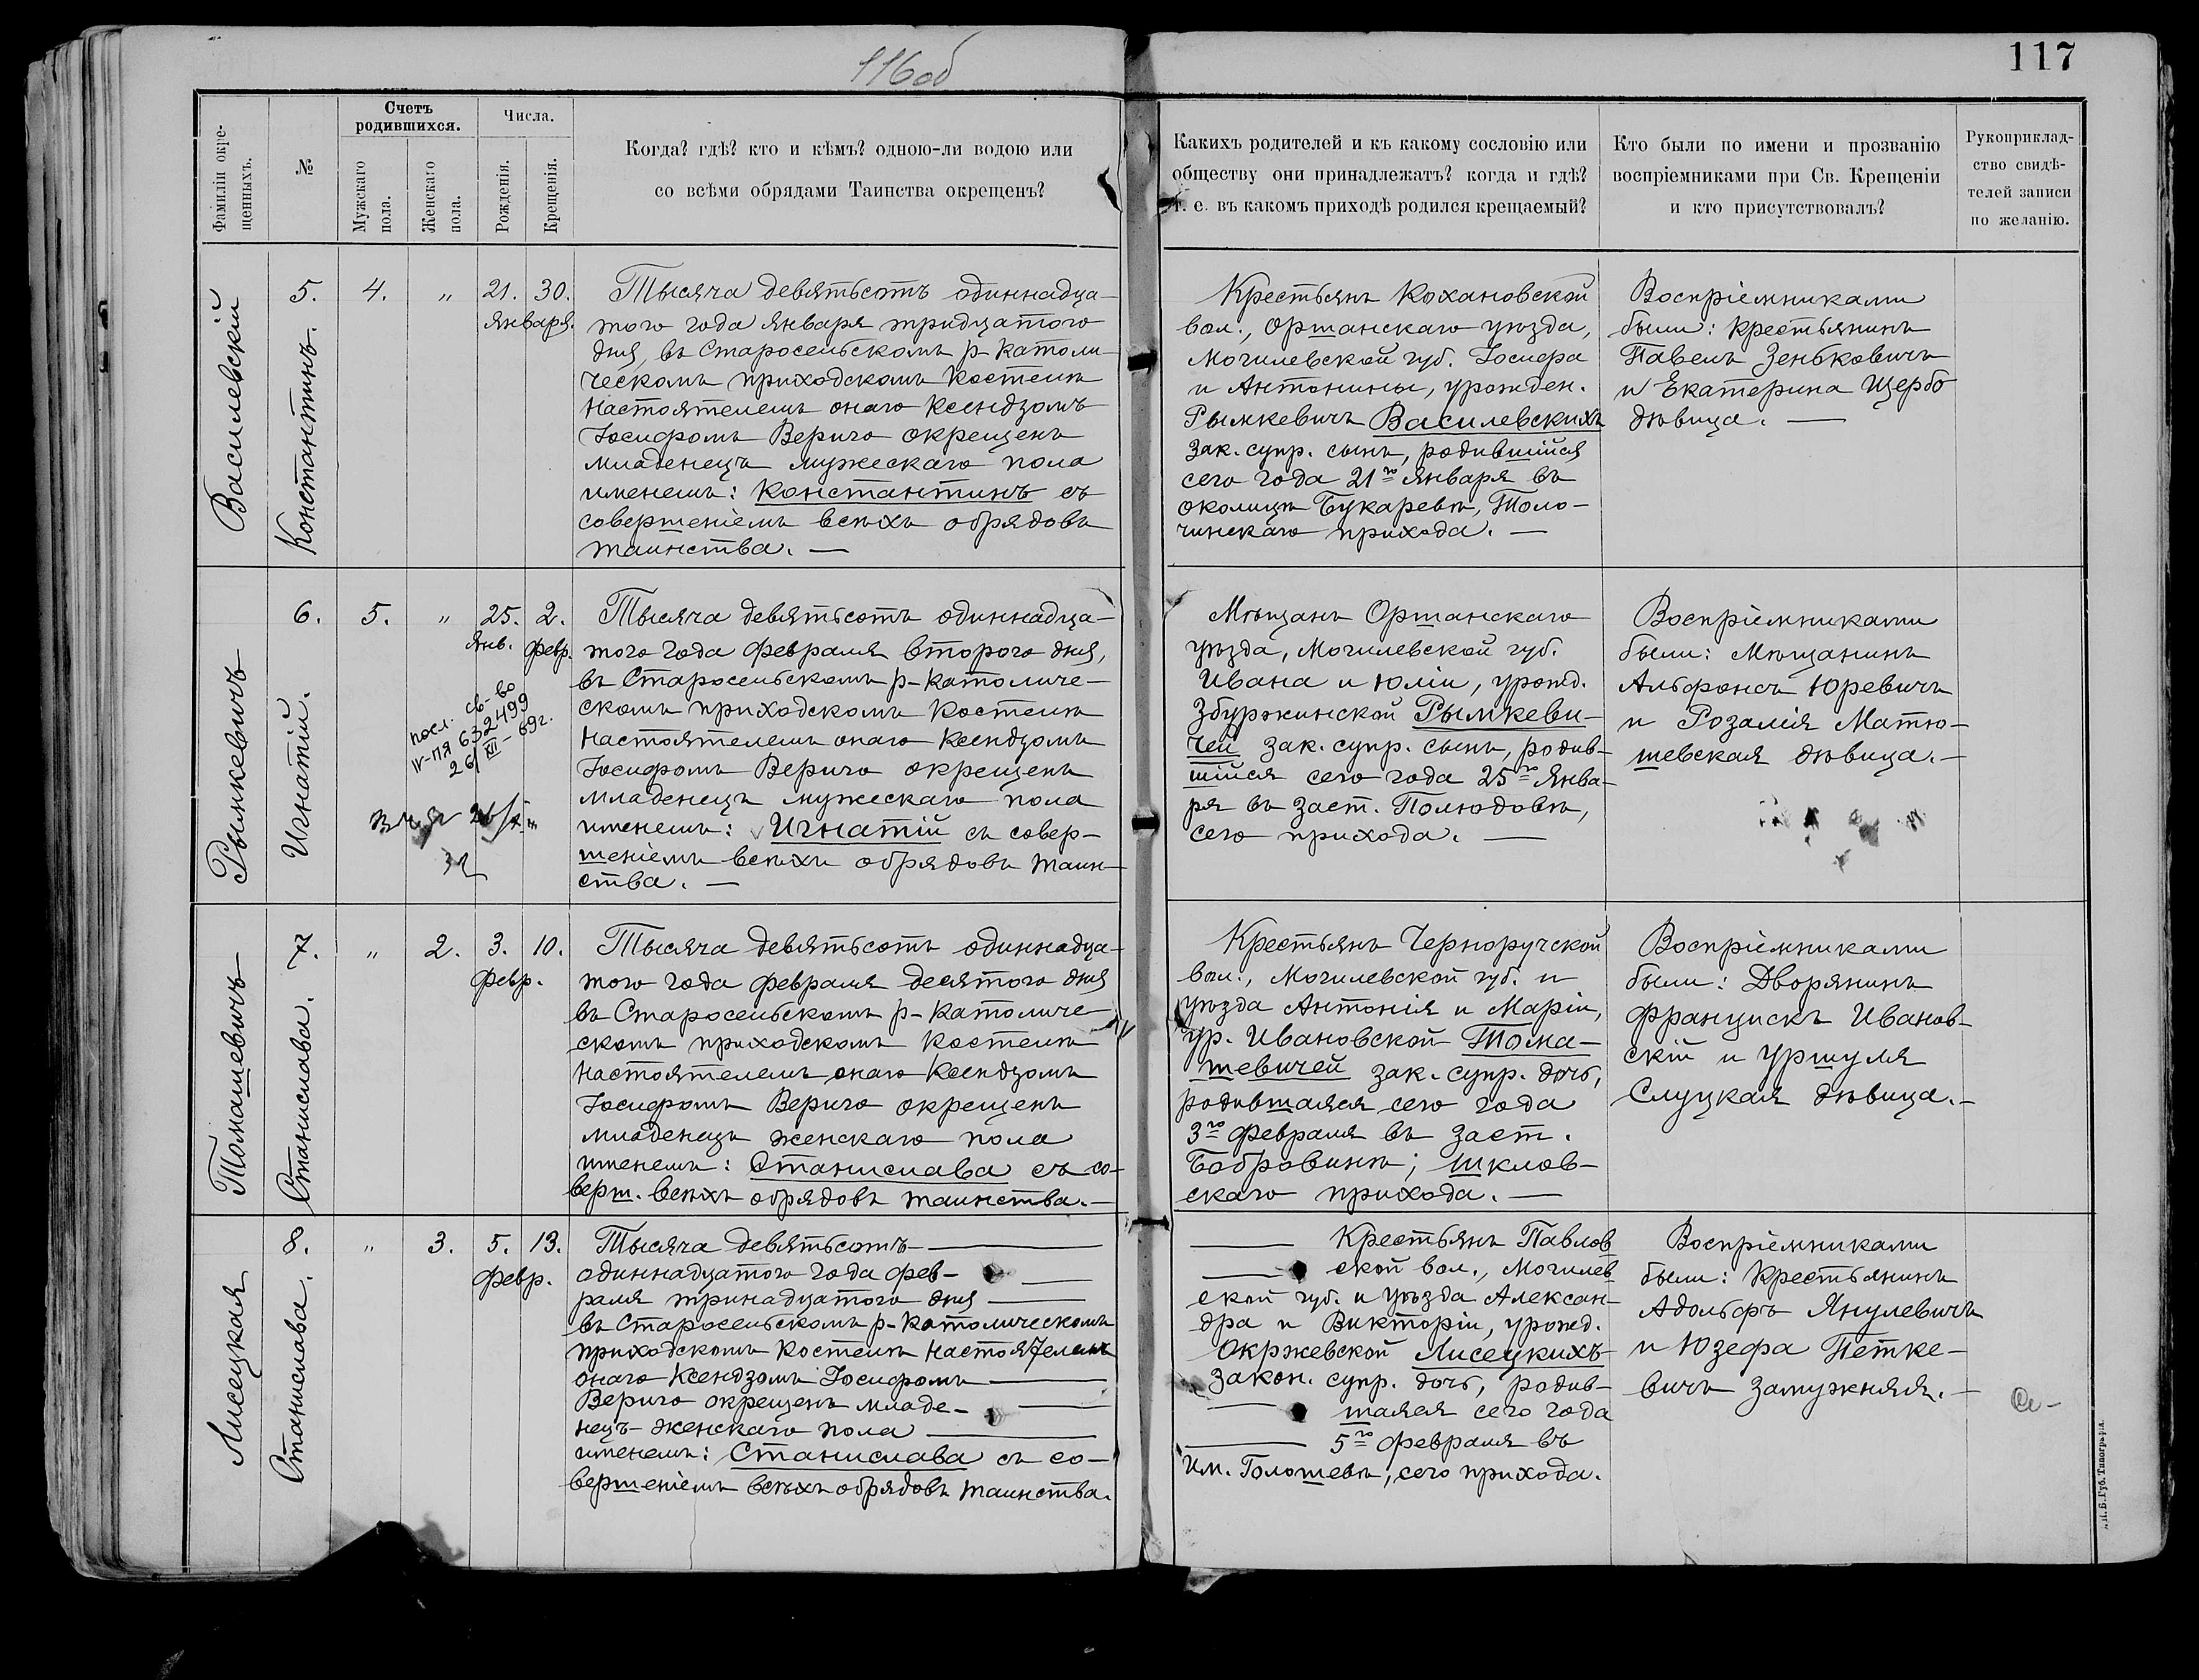 116об
117
Фамиліи окре-
щенныхъ.
№
Счетъ
родившихся.
Мужскаго
пола.
Женскаго
пола.
Числа.
Рожденія.
Крещенія.
Когда? гдѣ? кто и кѣмъ? одною-ли водою или
со всѣми обрядами Таинства окрещенъ?
Какихъ родителей и къ какому сословію или
обществу они принадлежатъ? когда и гдѣ?
т. е. въ какомъ приходѣ родился крещаемый?
Кто были по имени и прозванію
воспріемниками при Св. Крещеніи
и кто присутствовалъ?
Рукоприклад-
ство свидѣ-
телей записи
по желанію.
Василевскій
5.
Константинъ.
4.
"
21. 30.
Января.
Тысяча девятьсотъ одиннадца-
того года Января тридцатого
дня, въ Старосельскомъ р-католи-
ческомъ приходскомъ костелѣ
настоятелемъ онаго ксендзомъ
Іосифомъ Верыго окрещенъ
младенецъ мужескаго пола
именемъ: Константинъ съ
совершеніемъ всѣхъ обрядовъ
таинства. —
Крестьянъ Кохановской
вол., Оршанскаго уѣзда,
Могилевской губ. Іосифа
и Антонины, урожден.
Рымкевичъ Василевскихъ
зак. супр. сынъ, родившійся
сего года 21го Января въ
околицѣ Букаревѣ, Толо-
чинскаго прихода. —
Воспріемниками
были: крестьянинъ
Павелъ Зенбковичъ
и Екатерина Щербо
дѣвица. —
Рымкевичъ
6.
Игнатій.
5.
"
25. 2.
Янв. Февр.
посл. св-во
IV-ПЯ 632499
26/XII-69г.
Тысяча девятьсотъ одиннадца-
того года Февраля второго дня,
въ Старосельскомъ р-католиче-
скомъ приходскомъ костелѣ
настоятелемъ онаго ксендзомъ
Іосифомъ Верыго окрещенъ
младенецъ мужескаго пола
именемъ: Игнатій съ совер-
шеніемъ всѣхъ обрядовъ таин-
ства. —
Мѣщанъ Оршанскаго
уѣзда, Могилевской губ.
Ивана и Юліи, урожд.
Збуржинской Рымкеви-
чей зак. супр. сынъ, родив-
шійся сего года 25го Янва-
ря въ заст. Полюдовѣ,
сего прихода. —
Воспріемниками
были: Мѣщанинъ
Альфонсъ Юревичъ
и Розалія Матю-
шевская дѣвица. —
Томашевичъ
7.
Станислава.
"
2.
3. 10.
Февр.
Тысяча девятьсотъ одиннадца-
того года Февраля десятого дня
въ Старосельскомъ р-католиче-
скомъ приходскомъ костелѣ
настоятелемъ онаго ксендзомъ
Іосифомъ Верыго окрещенъ
младенецъ женскаго пола
именемъ: Станислава съ со-
верш. всѣхъ обрядовъ таинства. —
Крестьянъ Черноручской
вол., Могилевской губ. и
уѣзда Антонія и Маріи,
ур. Ивановской Тома-
шевичей зак. супр. дочь,
родившаяся сего года
3го Февраля въ заст.
Бобровинѣ; Шклов-
скаго прихода. —
Воспріемниками
были: Дворянинъ
Францискъ Иванов-
скій и Уршуля
Слуцкая дѣвица. —
Лисецкая
8.
Станислава.
"
3.
5. 13.
Февр.
Тысяча девятьсотъ
одиннадцатого года фев-
раля тринадцатого дня
въ Старосельскомъ р-католическомъ
приходскомъ костелѣ настоятелемъ
онаго ксендзомъ Іосифомъ
Верыго окрещенъ младе-
нецъ женскаго пола
именемъ: Станислава съ со-
вершеніемъ всѣхъ обрядовъ таинства.
Крестьянъ Павлов
ской вол., Могилев
ской губ. и уѣзда Алексан-
дра и Викторіи, урожд.
Окржевской Лисецкихъ
закон. супр. дочь, родив-
шаяся сего года
5го Февраля въ
им. Голошевѣ, сего прихода.
Воспріемниками
были: Крестьянинъ
Адольфъ Янулевичъ
и Юзефа Петке-
вичъ замужняя. —